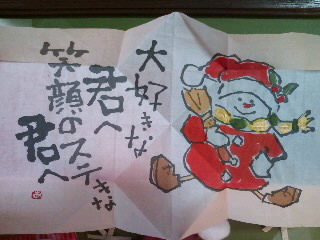 大好きな
君へ
笑顔のステキな
君へ